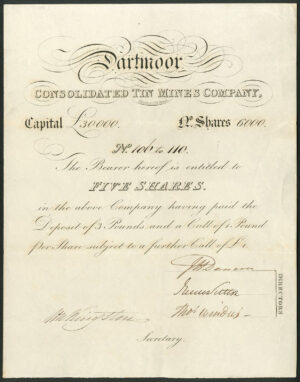 Dartmoor
CONSOLIDATED TIN MINES COMPANY,
Capital £30000. No. Shares 6000.
No. 106 to 110.
The Bearer hereof is entitled to
FIVE SHARES.
in the above Company having paid the
Deposit of 3 Pounds and a Call of 1 Pound
per Share subject to a further Call of £1.
DIRECTORS
Secretary.